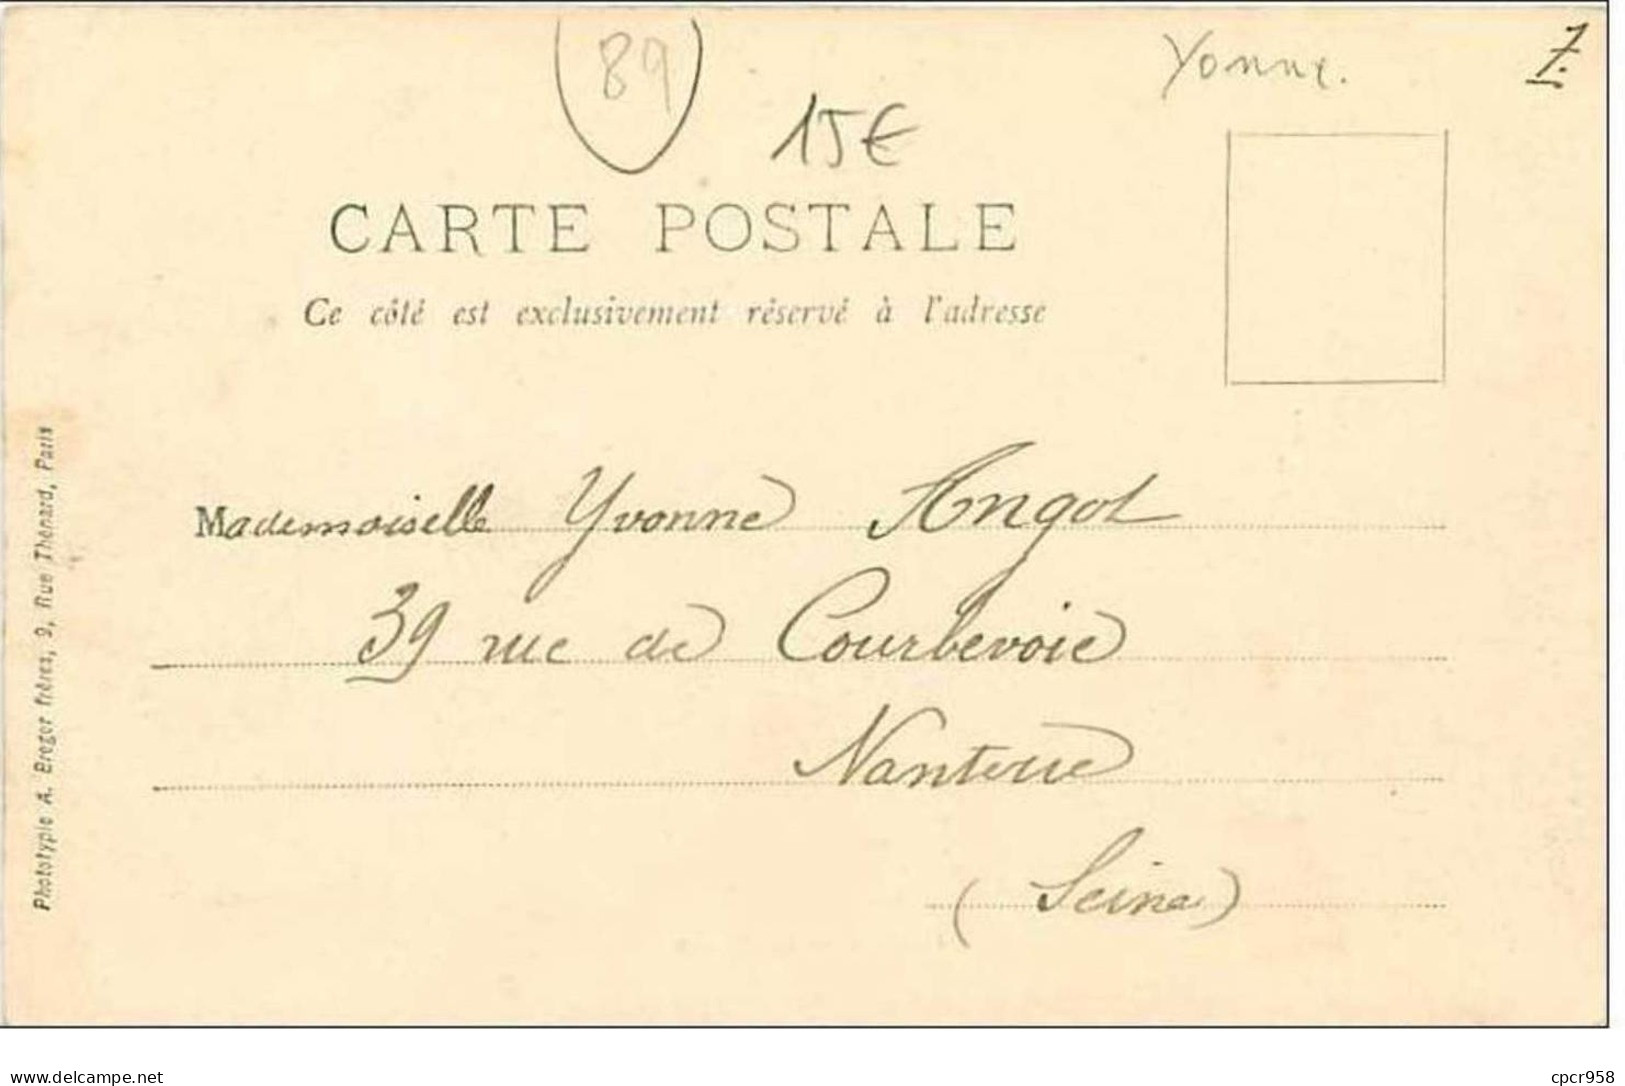 89
15€
Yonne.
7.
CARTE POSTALE
Ce côté est exclusivement réservé à l'adresse
Mademoiselle Yvonne Angot
39 rue de Courbevoie
Nanterre
(Seine)
Phototypie A. Breger frères, 9, Rue Thénard, Paris
www.delcampe.net
cpcr958